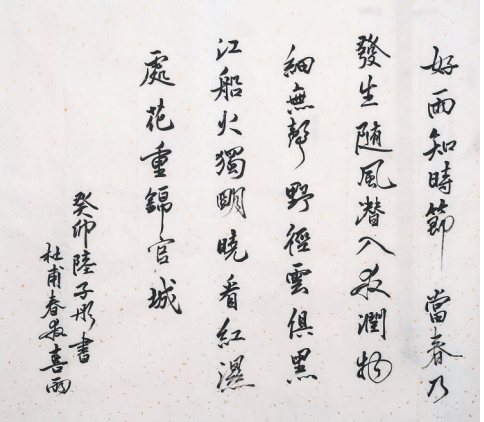 好雨知時節當春乃
發生随風潜入夜潤物
細無聲野徑雲俱黑
江船火獨明曉看紅濕
處花重錦官城
癸卯陸子彤書
杜甫春夜喜雨